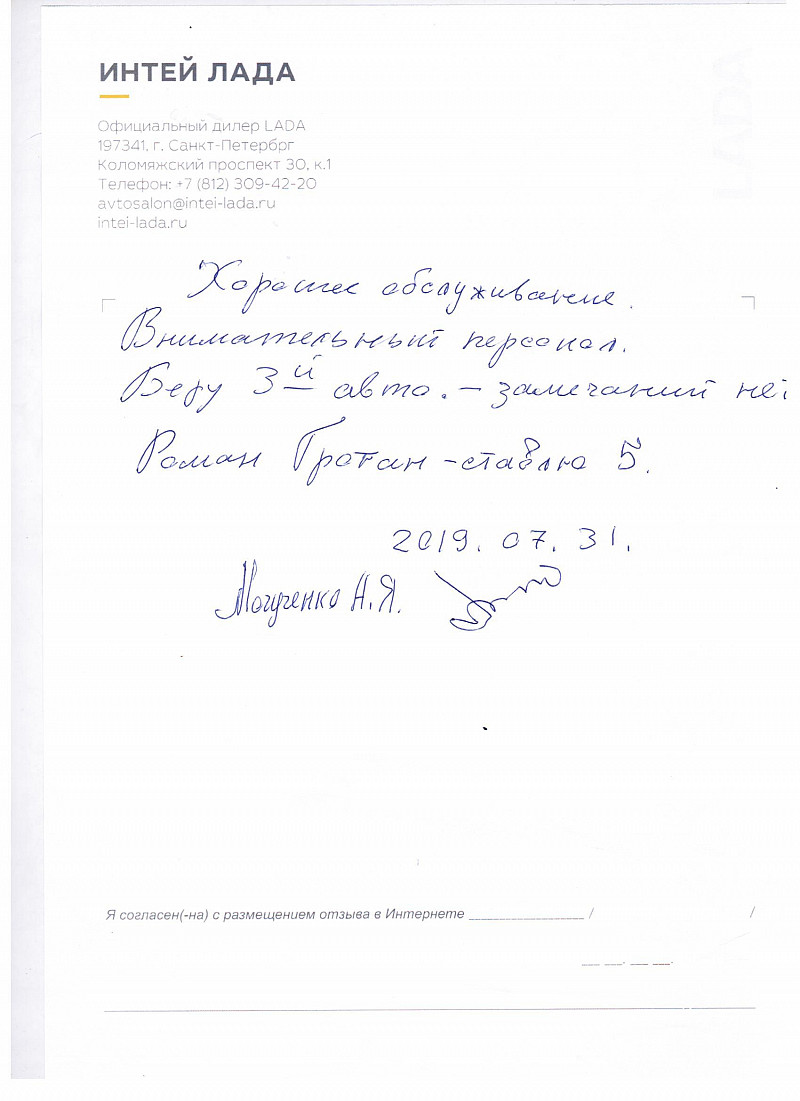 ИНТЕЙ ЛАДА
Официальный дилер LADA
197341, г. Санкт-Петербрг
Коломяжский проспект 30, к.1
Телефон: +7 (812) 309-42-20
avtosalon@intei-lada.ru
intei-lada.ru
Хорошее обслуживание.
Внимательный персонал.
Беру 3й авто. – замечаний нет
Роман – ставлю 5.
2019. 07. 31.
А.Я.
Я согласен(-на) с размещением отзыва в Интернете ________________ / /